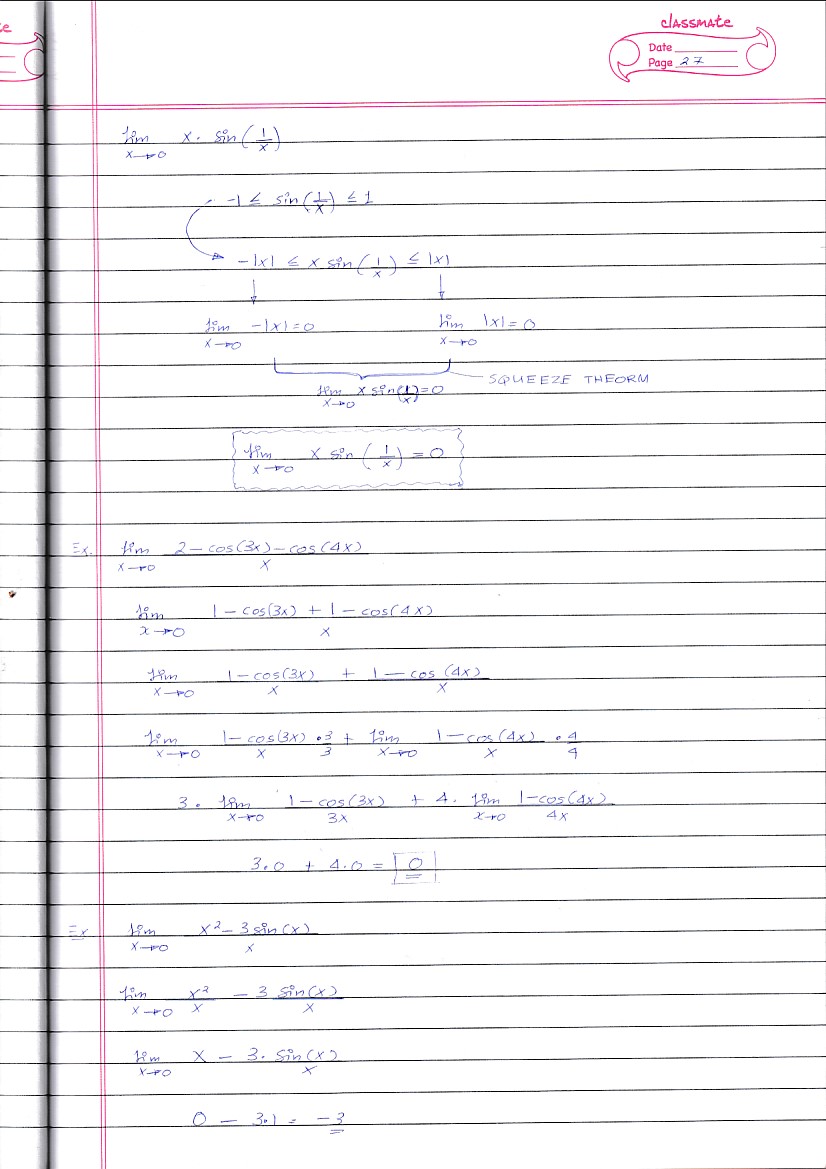 classmate
Date
Page 27
lim x→0 x · sin(1/x)
-1 ≤ sin(1/x) ≤ 1
-|x| ≤ x sin(1/x) ≤ |x|
lim x→0 -|x| = 0 lim x→0 |x| = 0
SQUEEZE THEORM
lim x→0 x sin(1/x) = 0
lim x→0 x sin(1/x) = 0
Ex. lim x→0 (2 - cos(3x) - cos(4x))/x
lim x→0 (1 - cos(3x) + 1 - cos(4x))/x
lim x→0 (1 - cos(3x))/x + (1 - cos(4x))/x
lim x→0 (1 - cos(3x))/x · 3/3 + lim x→0 (1 - cos(4x))/x · 4/4
3 · lim x→0 (1 - cos(3x))/3x + 4 · lim x→0 (1 - cos(4x))/4x
3·0 + 4·0 = 0
Ex lim x→0 (x² - 3 sin(x))/x
lim x→0 x²/x - 3 sin(x)/x
lim x→0 x - 3 · sin(x)/x
0 - 3·1 = -3